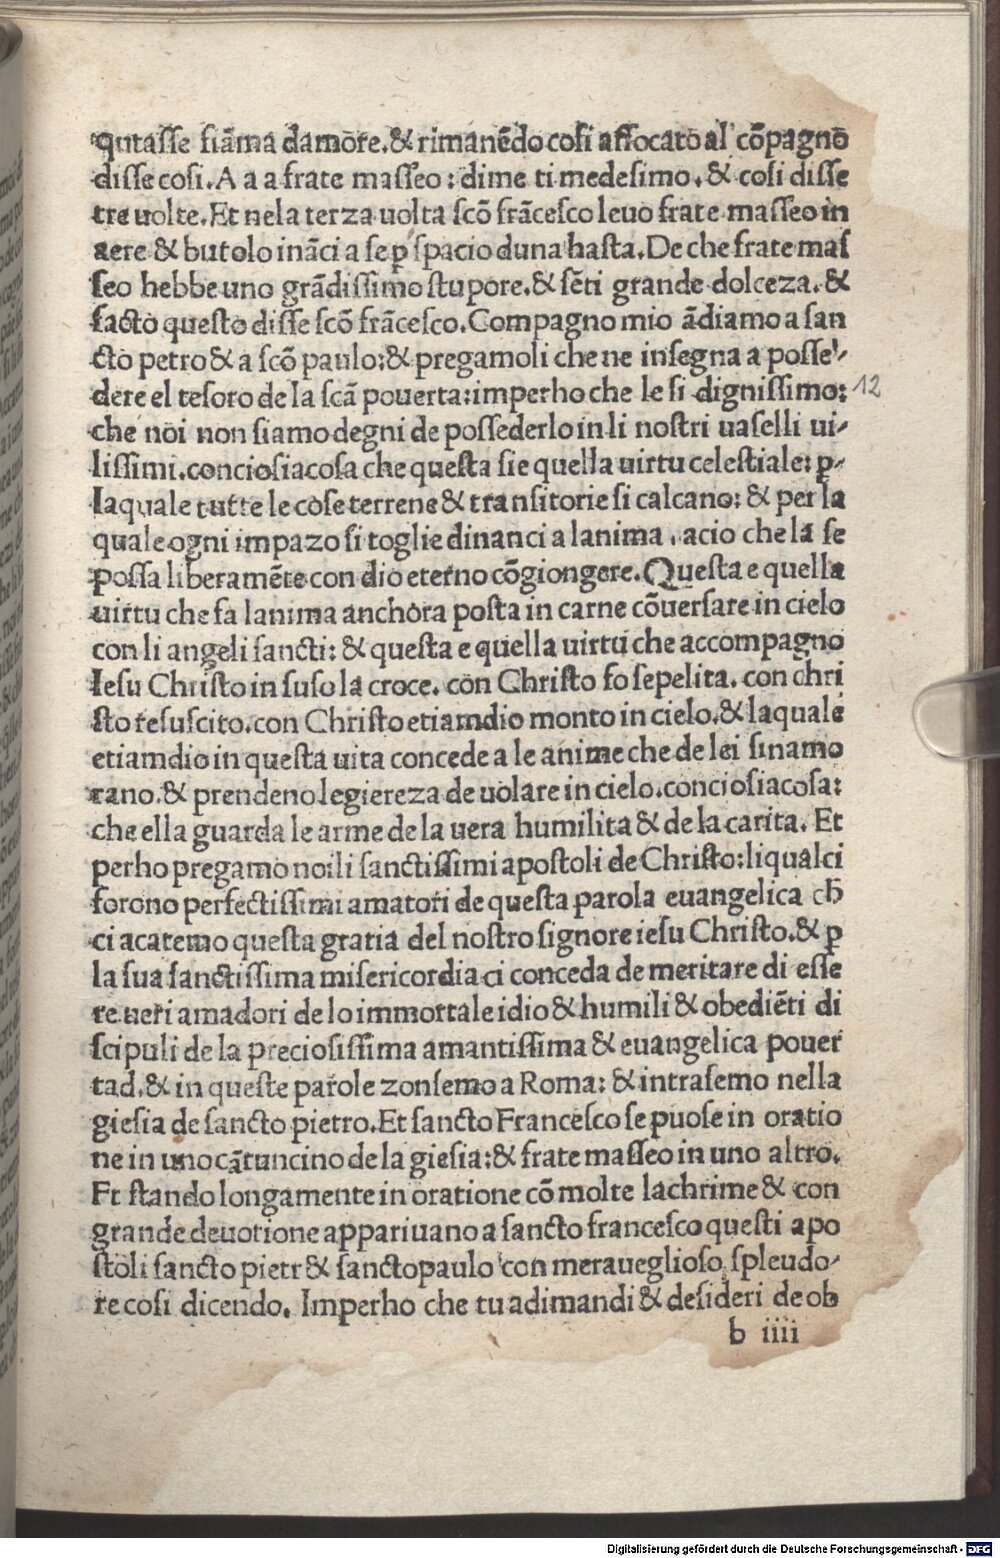 qutasse fiāma damore.& rimanēdo cosi affocato al cōpagno
disse cosi.A a a frate masseo: dime ti medesimo.& cosi disse
tre uolte.Et nela terza uolta scō frācesco leuo frate masseo in
aere & butolo ināci a se ꝑ spacio duna hasta.De che frate mas
seo hebbe uno grādissimo stupore.& sēti grande dolceza.&
facto questo disse scō frācesco.Compagno mio ādiamo a san
cto petro & a scō paulo:& pregamoli che ne insegna a posse-
dere el tesoro de la scā pouerta:imperho che le si dignissimo:
che noi non siamo degni de possederlo in li nostri uaselli ui-
lissimi.conciosiacosa che questa sie quella uirtu celestiale: ꝑ-
laquale tutte le cose terrene & transitorie si calcano: & per la
quale ogni impazo si toglie dinanci a lanima . acio che la se
possa liberamēte con dio eterno cōgiongere.Questa e quella
uirtu che fa lanima anchora posta in carne cōuersare in cielo
con li angeli sancti: & questa e quella uirtu che accompagno
Iesu Christo in suso la croce. con Christo fo sepelita. con chri
sto resuscito.con Christo etiamdio monto in cielo.& laquale
etiamdio in questa uita concede a le anime che de lei sinamo
rano.& prendeno legiereza de uolare in cielo.conciosiacosa:
che ella guarda le arme de la uera humilita & de la carita. Et
perho pregamo noi li sanctissimi apostoli de Christo:liqualci
forono perfectissimi amatori de questa parola euangelica cħ
ci acatemo questa gratia del nostro signore iesu Christo.& ꝑ
la sua sanctissima misericordia ci conceda de meritare di esse
re ueri amadori de lo immortale idio & humili & obediēti di
scipuli de la preciosissima amantissima & euangelica pouer
tad.& in queste parole zonsemo a Roma: & intrasemo nella
giesia de sancto pietro.Et sancto Francesco se puose in oratio
ne in uno cātuncino de la giesia:& frate masseo in uno altro.
Et stando longamente in oratione cō molte lachrime & con
grande deuotione appariuano a sancto francesco questi apo
stoli sancto pietr & sancto paulo con meraueglioso spleudo-
re cosi dicendo. Imperho che tu adimandi & desideri de ob
b iiii
12
Digitalisierung gefördert durch die Deutsche Forschungsgemeinschaft - DFG